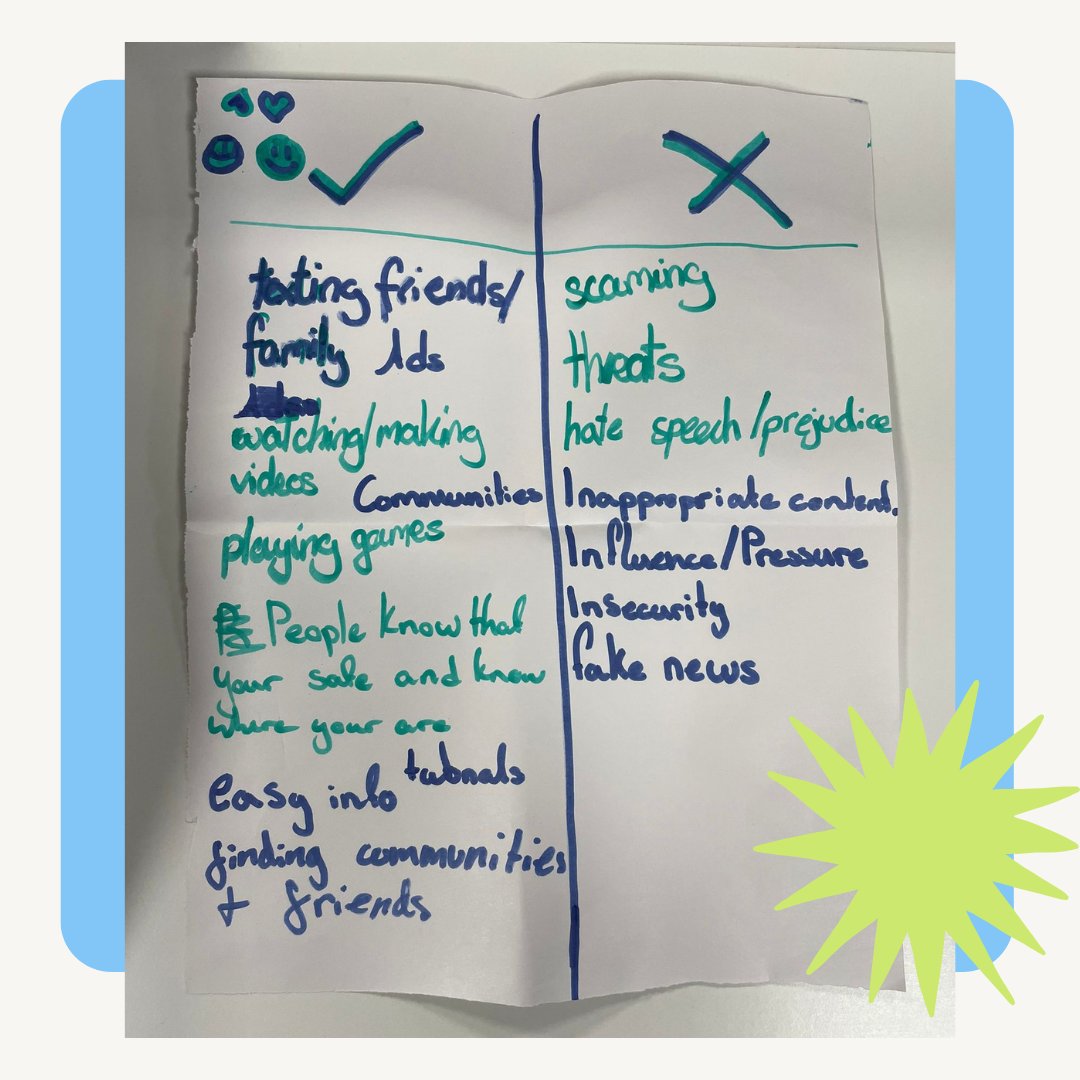 texting friends/
family Ads
watching/making
videos
Communities
playing games
People know that
your safe and know
where your are
easy info
tutorials
finding communities
+ friends
scaming
threats
hate speech/prejudice
Inappropriate content.
Influence/Pressure
Insecurity
fake news